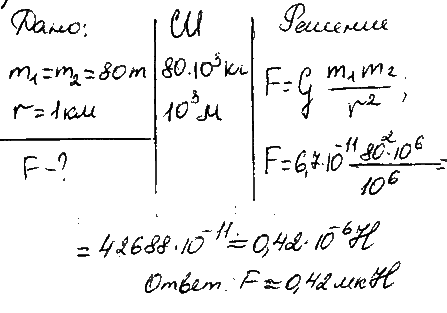 Дано:
m₁=m₂=80т
r=1км
F-?
СИ
80·10³кг
10³м
Решение
F=G m₁m₂/r²;
F=6,7·10⁻¹¹ 80²·10⁶/10⁶ =
=42688·10⁻¹¹=0,42·10⁻⁶Н
Ответ: F≈0,42мкН